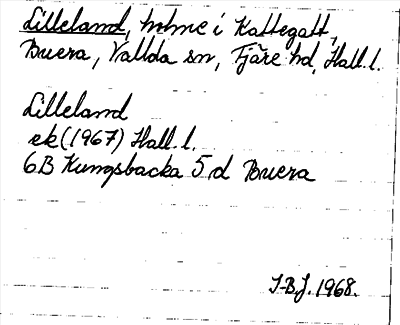 Lilleland, holme i Kattegatt,
Buera, Vallda sn, Fjäre hd, Hall. l.
Lilleland
ek (1967) Hall. l.
6B Kungsbacka 5 d Buera
I-B.J. 1968.